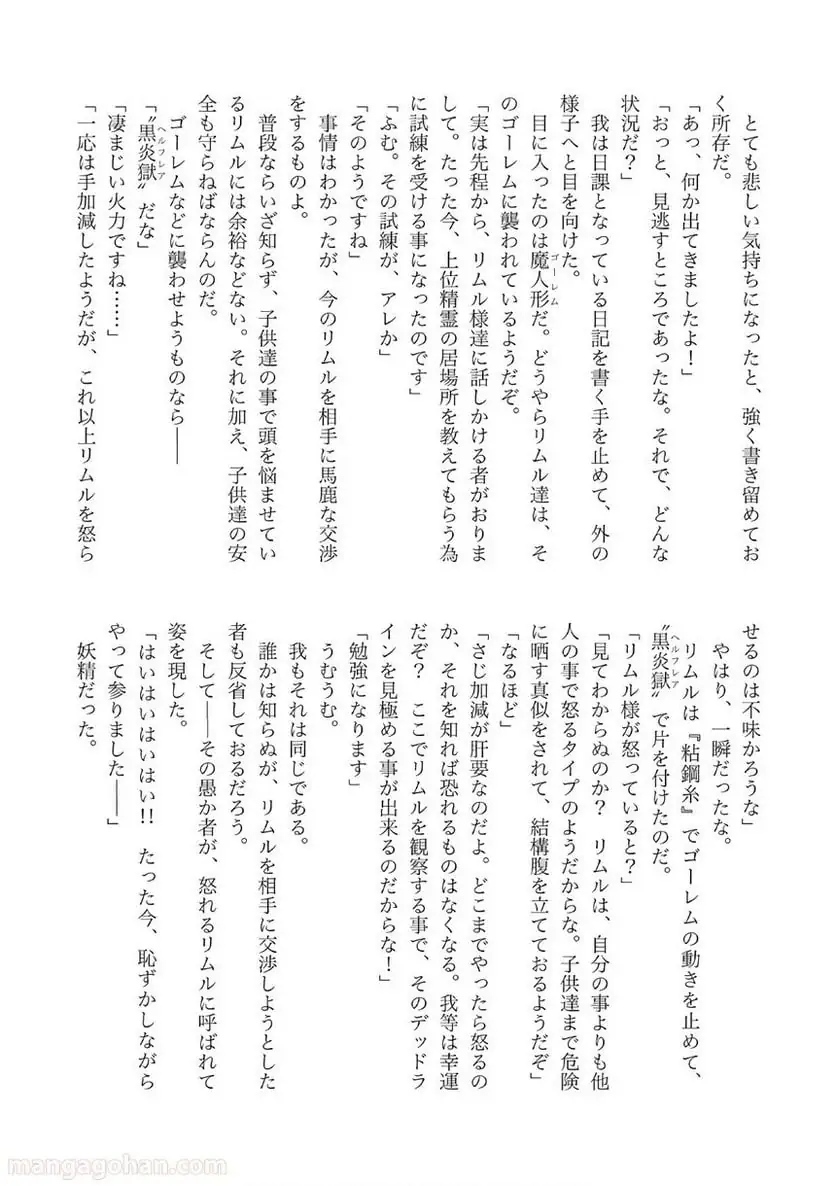 とても悲しい気持ちになったと、強く書き留めてお
く所存だ。
「あっ、何か出てきましたよ！」
「おっと、見逃すところであったな。それで、どんな
状況だ？」
我は日課となっている日記を書く手を止めて、外の
様子へと目を向けた。
目に入ったのは魔人形ゴーレムだ。どうやらリムル達は、そ
のゴーレムに襲われているようだぞ。
「実は先程から、リムル様達に話しかける者がおりま
して。たった今、上位精霊の居場所を教えてもらう為
に試練を受ける事になったのです」
「ふむ。その試練が、アレか」
「そのようですね」
事情はわかったが、今のリムルを相手に馬鹿な交渉
をするものよ。
普段ならいざ知らず、子供達の事で頭を悩ませてい
るリムルには余裕などない。それに加え、子供達の安
全も守らねばならんのだ。
ゴーレムなどに襲わせようものなら――
「〝黒炎獄ヘルフレア〟だな」
「凄まじい火力ですね……」
「一応は手加減したようだが、これ以上リムルを怒ら
せるのは不味かろうな」
やはり、一瞬だったな。
リムルは『粘鋼糸』でゴーレムの動きを止めて、
〝黒炎獄ヘルフレア〟で片を付けたのだ。
「リムル様が怒っていると？」
「見てわからぬのか？　リムルは、自分の事よりも他
人の事で怒るタイプのようだからな。子供達まで危険
に晒す真似をされて、結構腹を立てておるようだぞ」
「なるほど」
「さじ加減が肝要なのだよ。どこまでやったら怒るの
か、それを知れば恐れるものはなくなる。我等は幸運
だぞ？　ここでリムルを観察する事で、そのデッドラ
インを見極める事が出来るのだからな！」
「勉強になります」
うむうむ。
我もそれは同じである。
誰かは知らぬが、リムルを相手に交渉しようとした
者も反省しておるだろう。
そして――その愚か者が、怒れるリムルに呼ばれて
姿を現した。
「はいはいはいはい!!　たった今、恥ずかしながら
やって参りました――」
妖精だった。
mangagohan.com